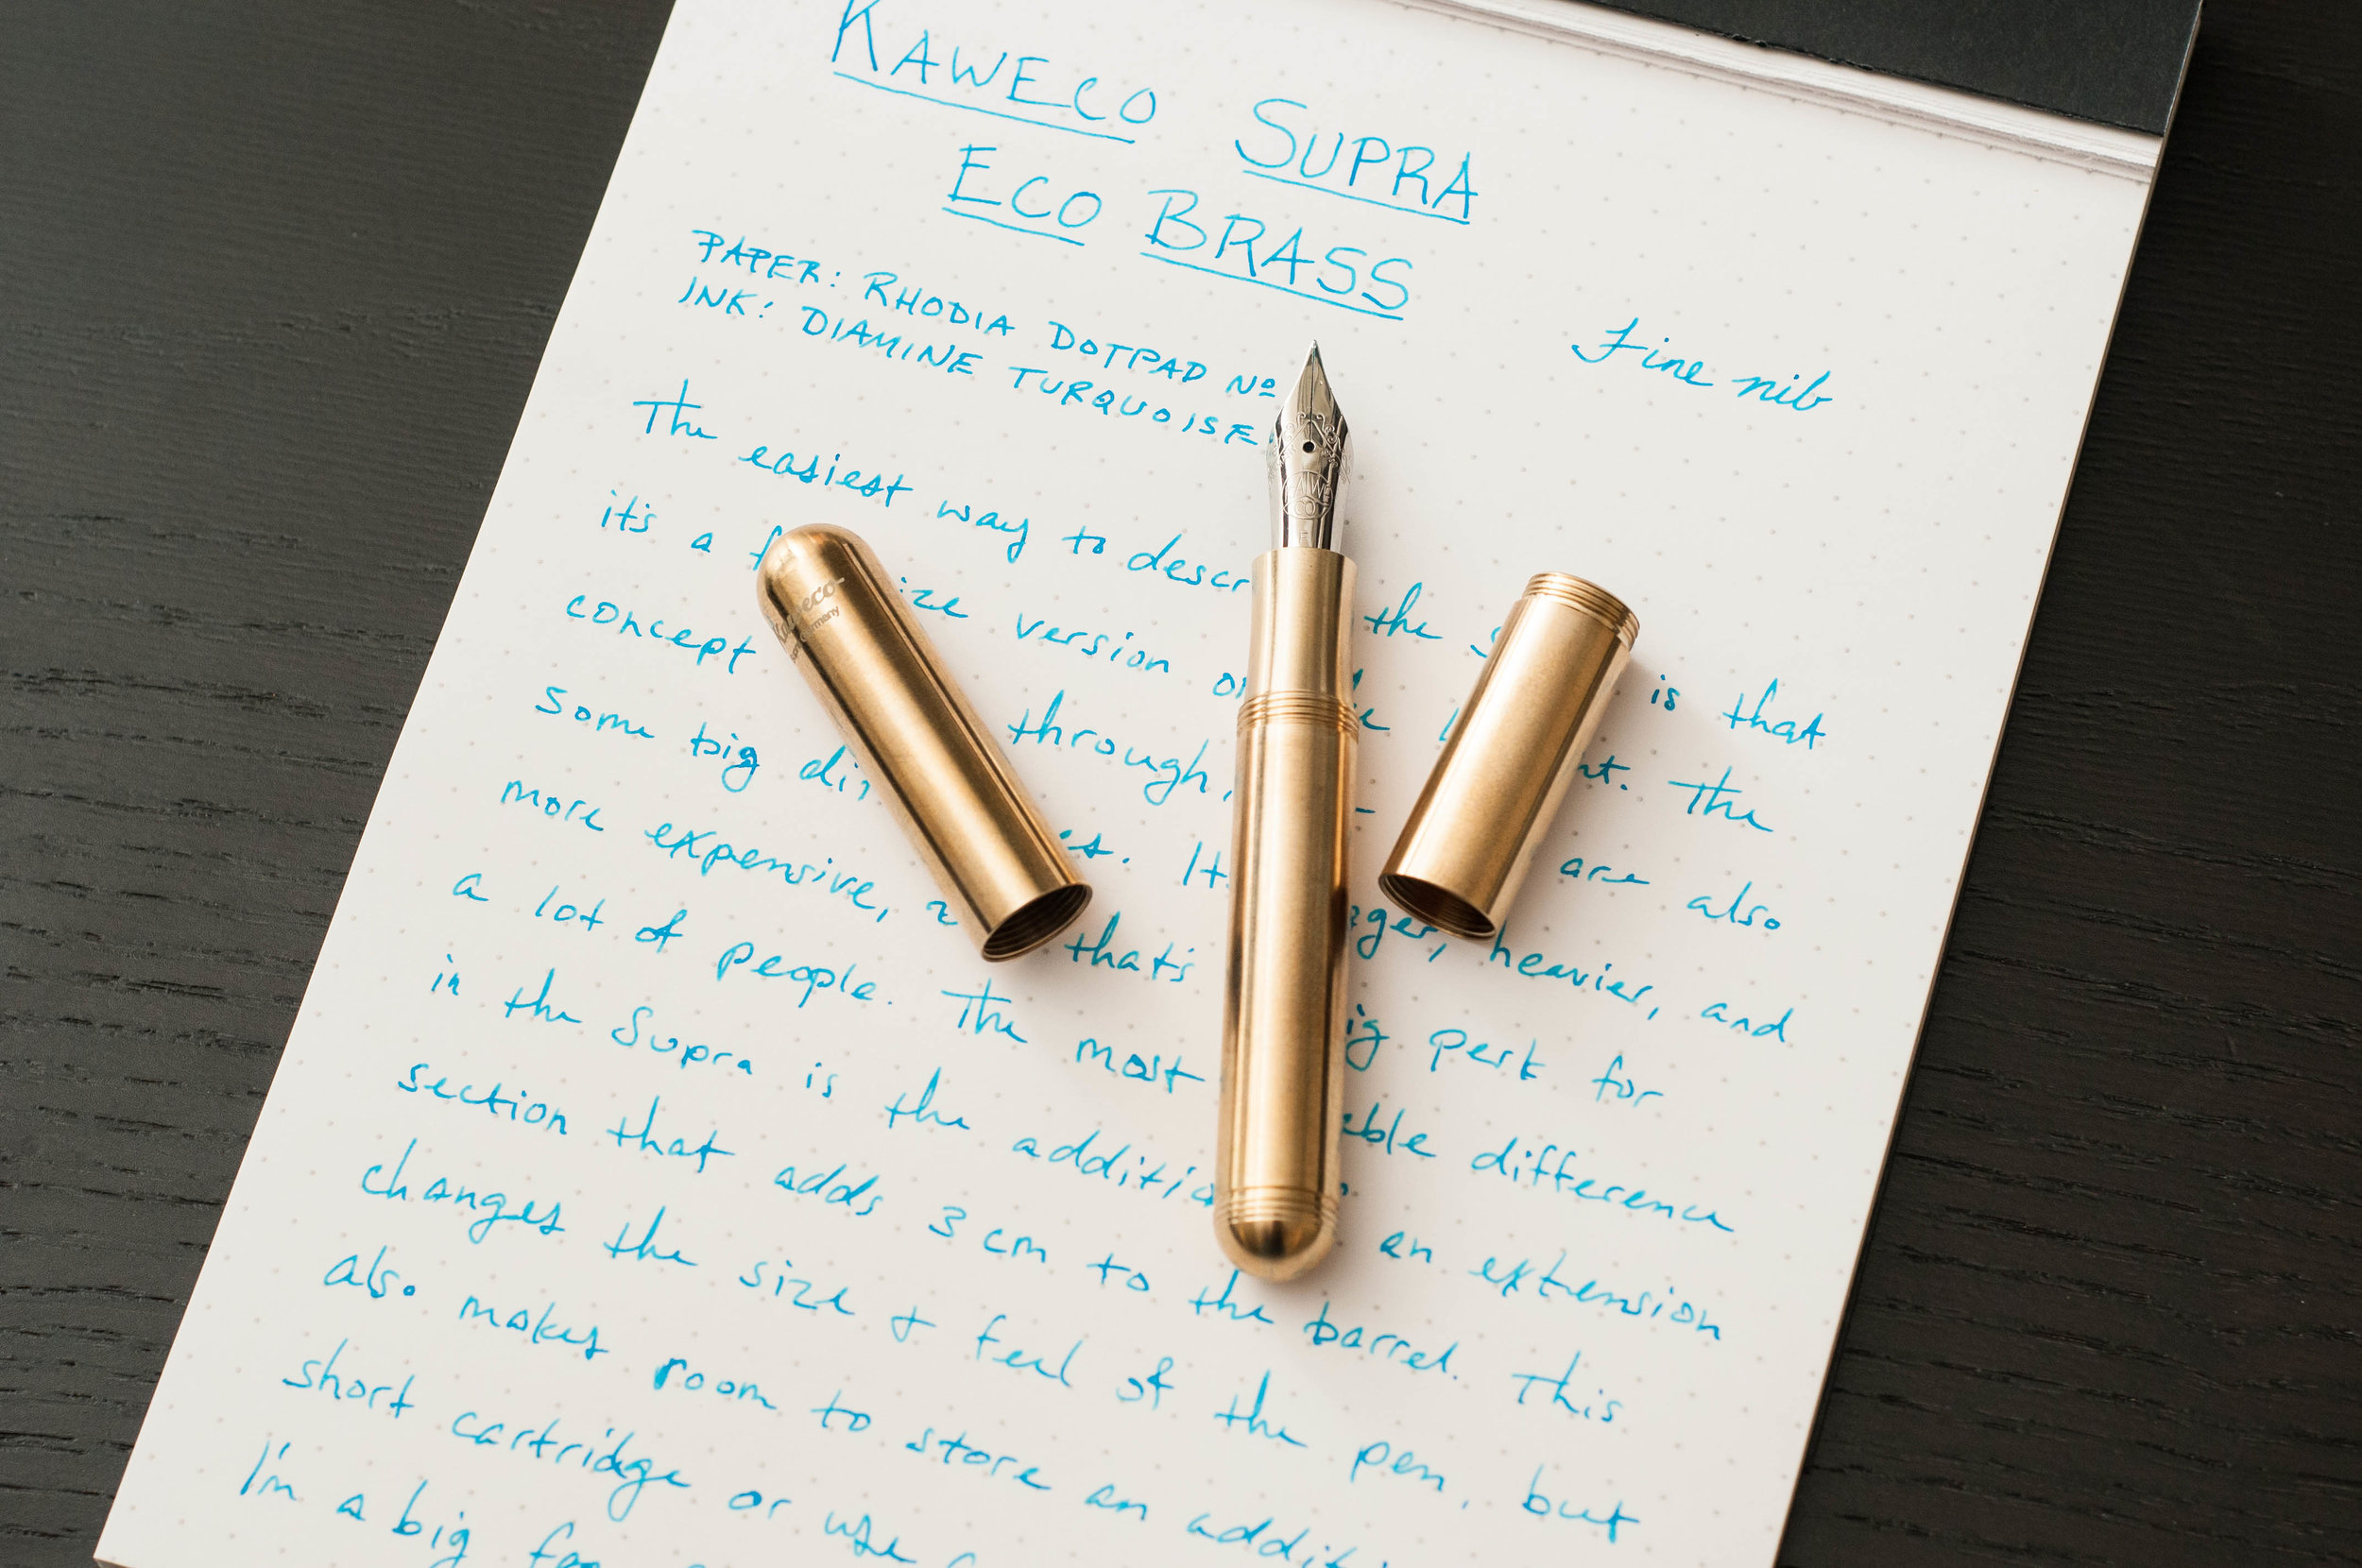 KAWECO SUPRA
ECO BRASS
PAPER: RHODIA DOTPAD Nº
INK: DIAMINE TURQUOISE
Fine nib
The easiest way to the is that
it's a version The
concept through, are also
some big heavier, and
more expensive, that's perk for
a lot of people. The most difference
in the Supra is the an extension
section that adds 3 cm to the barrel. This
changes the size & feel of the pen, but
also makes room to store an
short cartridge or use
I'm a big
Kaweco
Germany
KAWE
CO